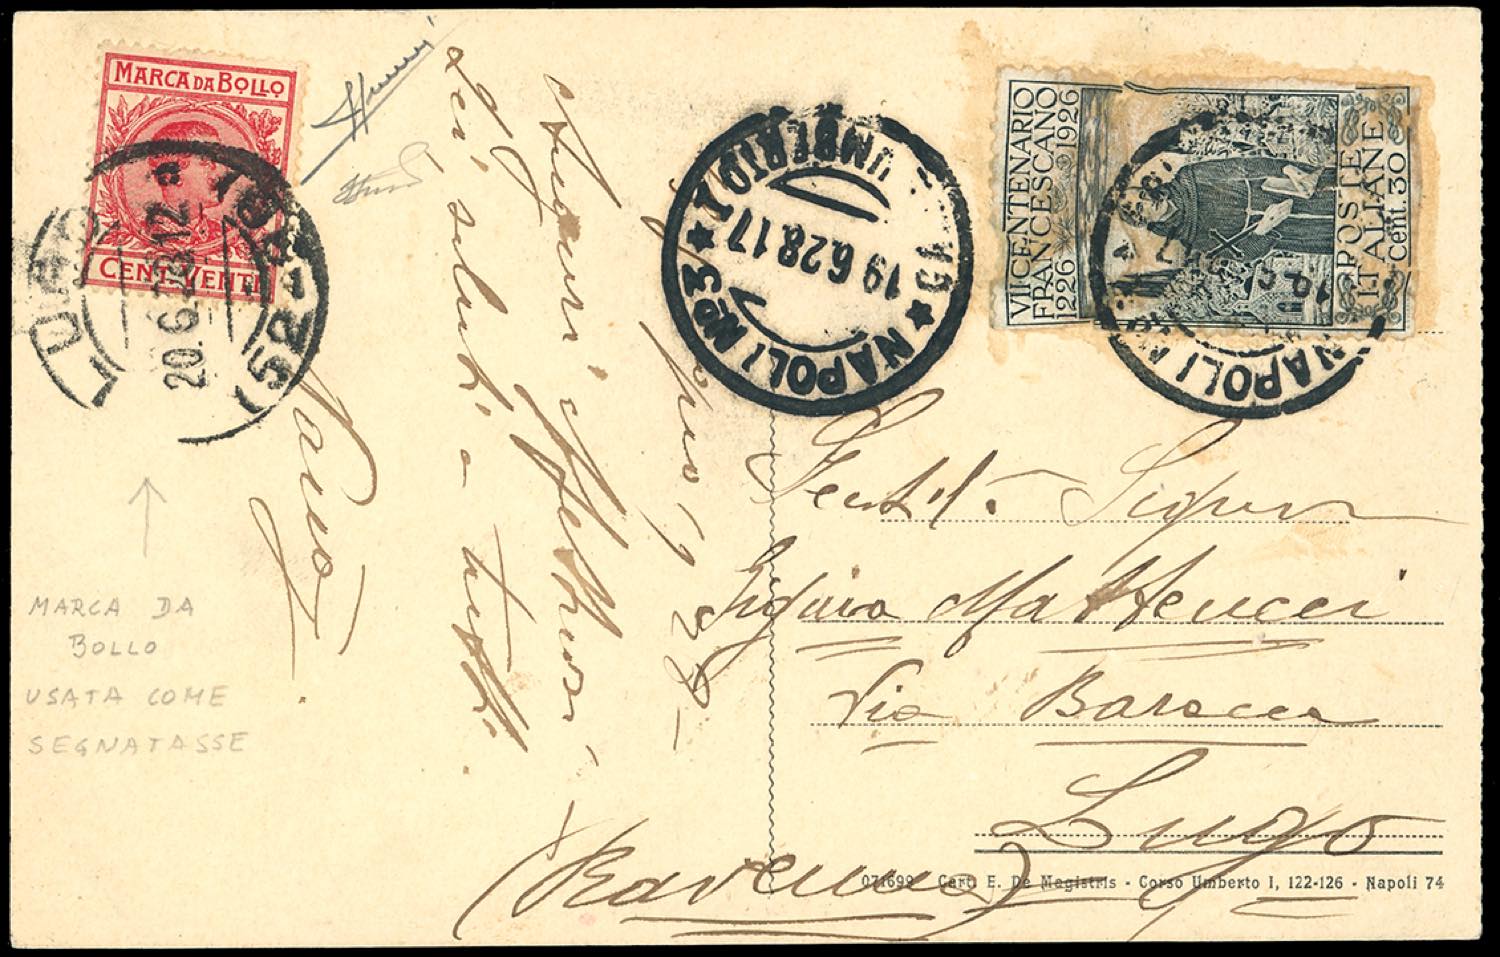 MARCA DA BOLLO
CENT. VENTI
LUGO
20.6.28.12
(52-43)
NAPOLI Nº3 ★ UMBERTO I
15 ★
19 6.28.17
VII CENTENARIO
FRANCESCANO
1226 1926
POSTE
ITALIANE
Cent. 30
NAPOLI
Auguri affettuosi
Lei saluti a tutti
28
Gentil. Signora
Matteucci
Via Baracca
Lugo
(Ravenna)
MARCA DA
BOLLO
USATA COME
SEGNATASSE
071699 - Cart. E. De Magistris - Corso Umberto I, 122-126 - Napoli 74